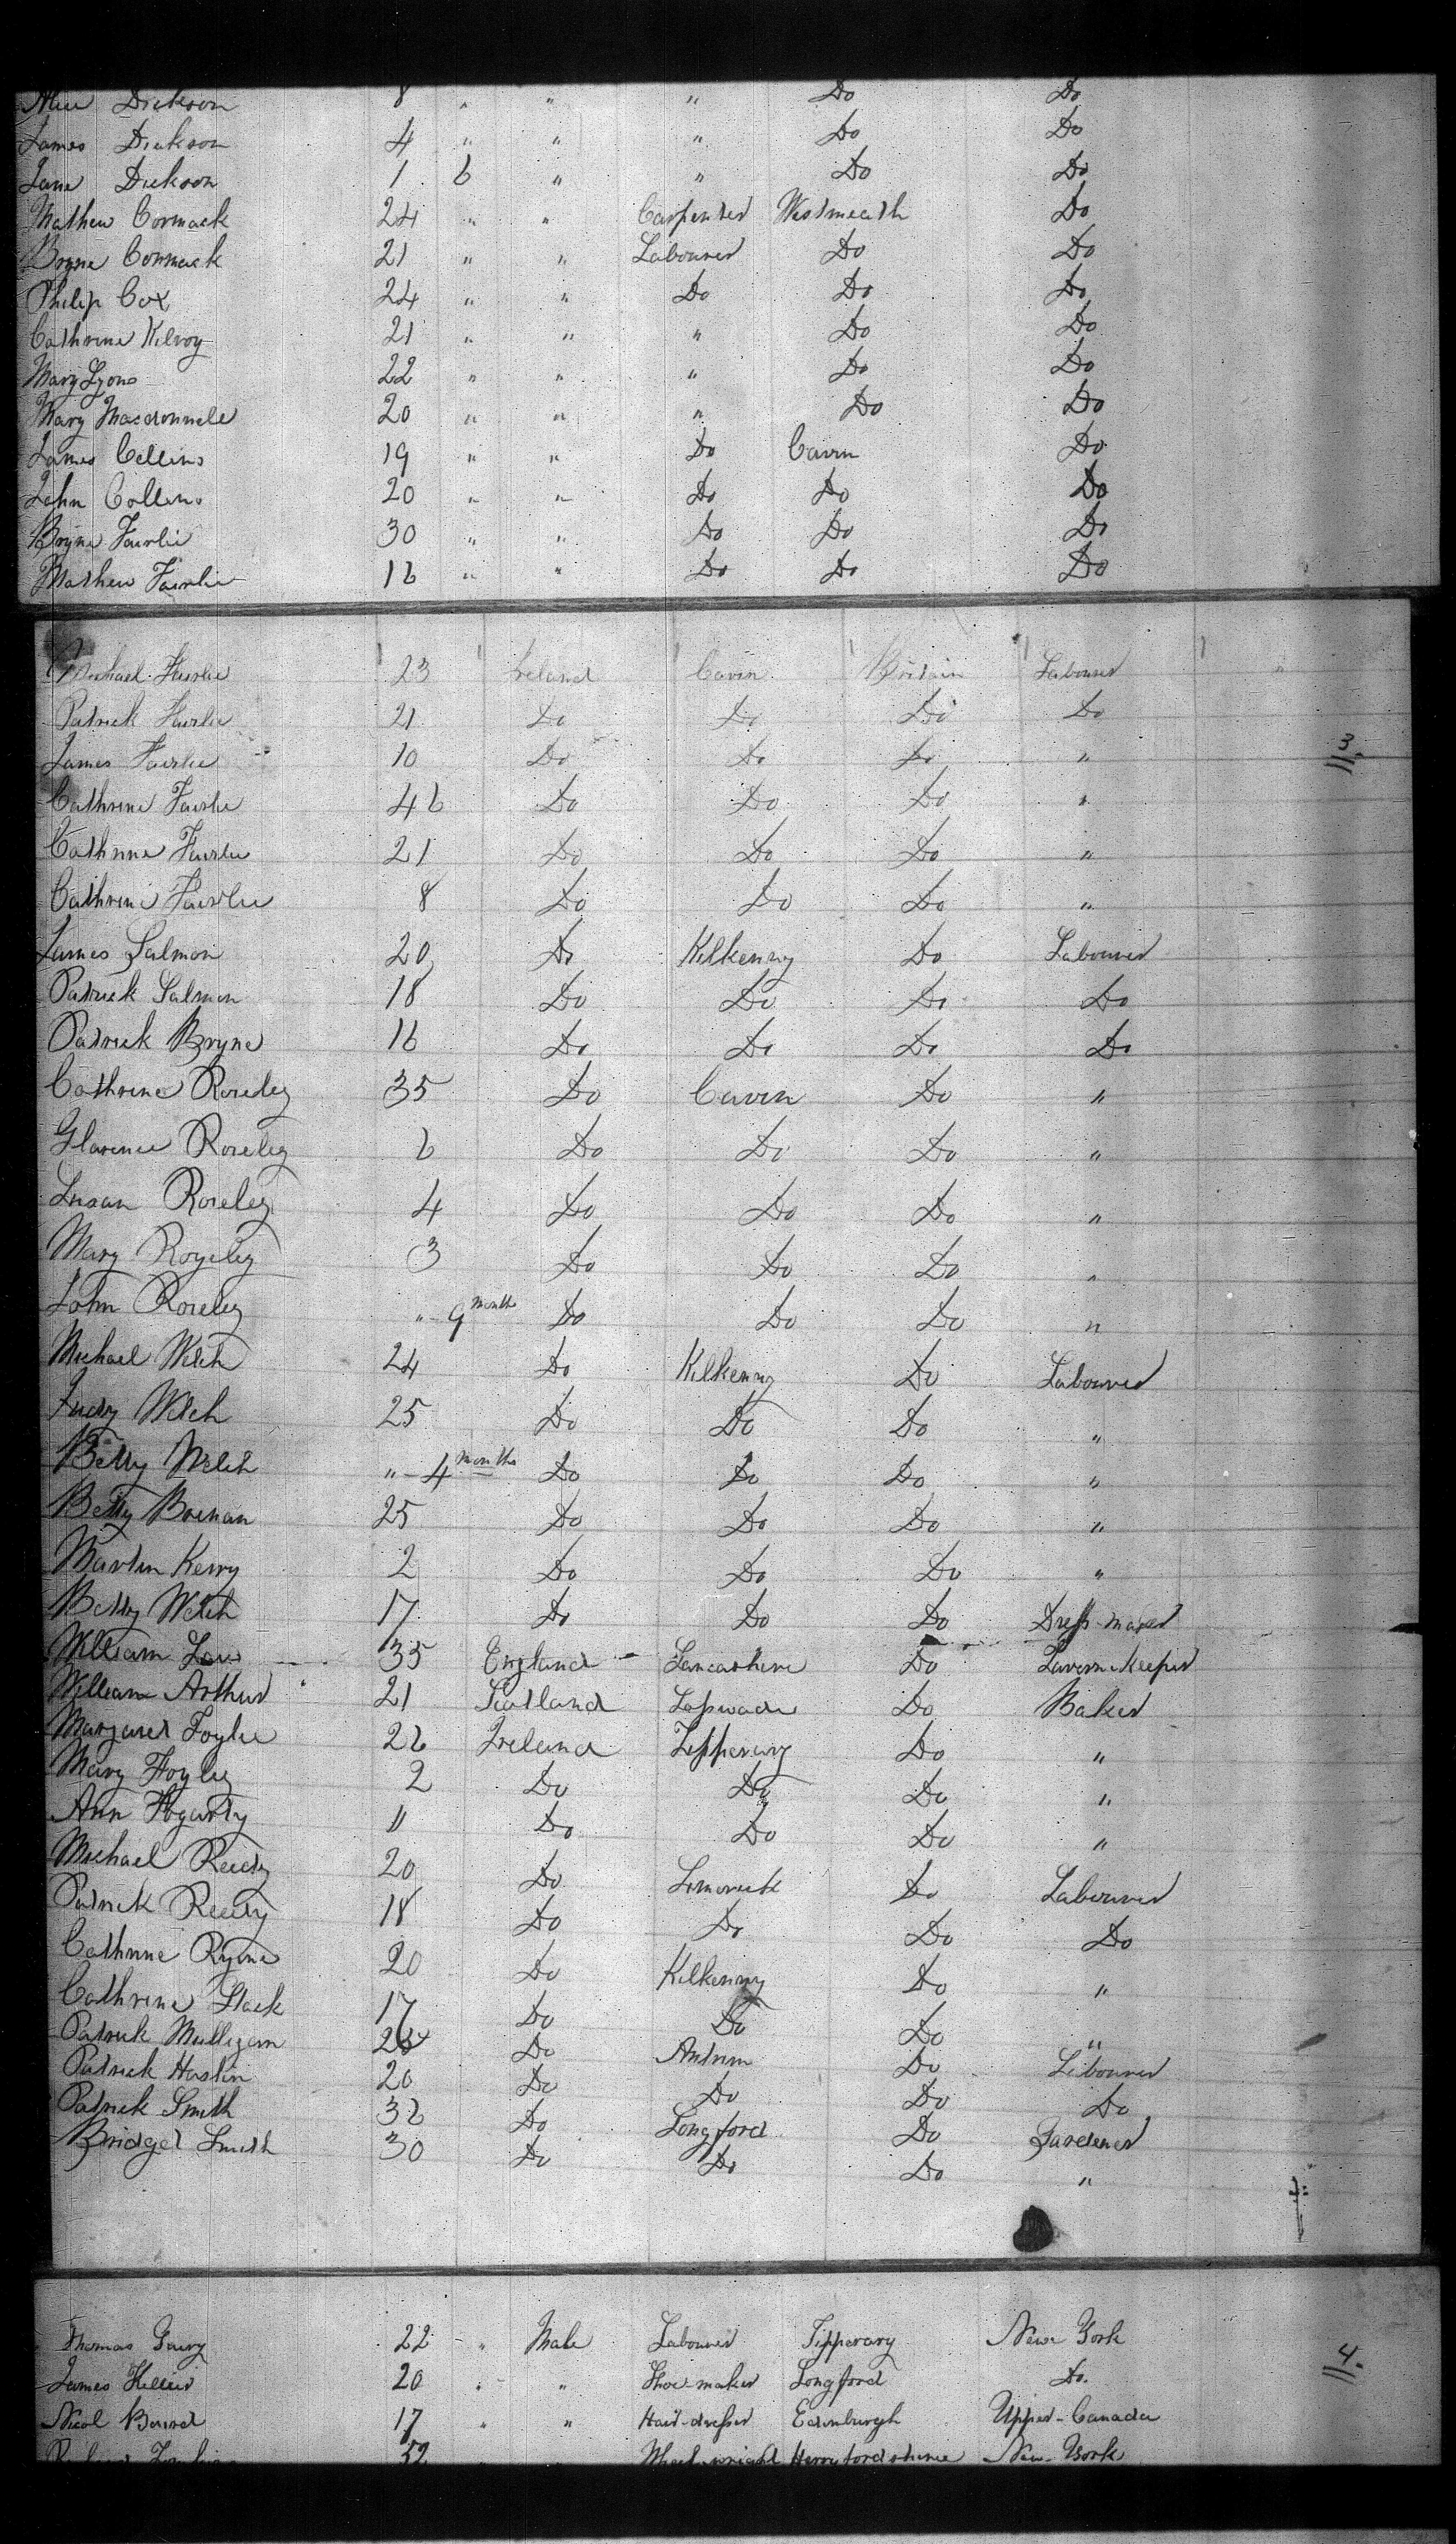 Alice Dickson 8 " " " Do Do
James Dickson 4 " " " Do Do
Jane Dickson 1 6 " " Do Do
Mathew Cormack 24 " " Carpenter Westmeath Do
Bryne Cormack 21 " " Labourer Do Do
Philip Cox 24 " " Do Do Do
Cathrine Kilroy 21 " " " Do Do
Mary Lyons 22 " " " Do Do
Mary Macdonnele 20 " " " Do Do
James Collins 19 " " Do Cavin Do
John Collins 20 " " Do Do Do
Bryne Fairlie 30 " " Do Do Do
Mathew Fairlie 16 " " Do Do Do
Michael Fairlie 23 Ireland Cavin Britain Labourer "
Patrick Fairlie 21 Do Do Do Do
James Fairlie 10 Do Do Do " 3
Cathrine Fairlie 46 Do Do Do "
Cathrine Fairlie 21 Do Do Do "
Cathrine Fairlie 8 Do Do Do "
James Salmon 20 Do Kilkenny Do Labourer
Patrick Salmon 18 Do Do Do Do
Patrick Bryne 16 Do Do Do Do
Cathrine Roseley 35 Do Cavin Do "
Glarence Roseley 6 Do Do Do "
Susan Roseley 4 Do Do Do "
Mary Royeley 3 Do Do Do "
John Roseley " 9 Months Do Do Do "
Michael Welch 24 Do Kilkenny Do Labourer
Judy Welch 25 Do Do Do "
Betty Welch " 4 Months Do Do Do "
Betty Brenan 25 Do Do Do "
Martin Kerry 2 Do Do Do "
Betty Welch 17 Do Do Do Dress-maker
William Low 35 England Lancashire Do Tavern Keeper
William Arthur 21 Scotland Laswade Do Baker
Margaret Foylie 26 Ireland Tipperary Do "
Mary Foyley 2 Do Do Do "
Ann Fogarty 11 Do Do Do "
Michael Reedy 20 Do Limerick Do Labourer
Patrick Reedy 18 Do Do Do Do
Cathrine Ryine 20 Do Kilkenny Do "
Cathrine Slack 17 Do Do Do "
Patrick Mulligan 24 Do Antrim Do Labourer
Patrick Haslin 20 Do Do Do Do
Patrick Smith 36 Do Longford Do Gardener
Bridget Smith 30 Do Do Do "
Thomas Garry 22 " Male Labourer Tipperary New York
James Killier 20 " " Shoe-maker Longford Do. 4.
Nicol Baird 17 " " Hair-dresser Edinburgh Upper-Canada
Richard 32 Wheel wright Herryfordshire New-York